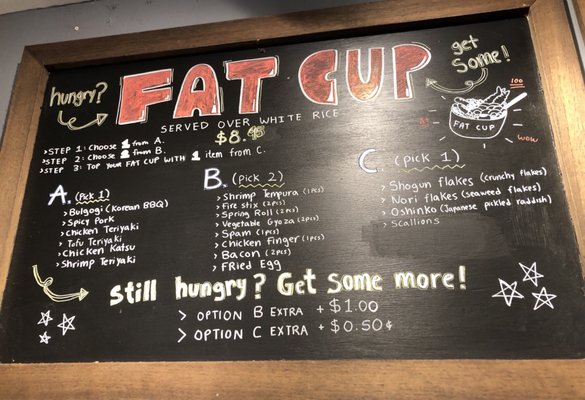 hungry?
FAT CUP
get Some!
SERVED OVER WHITE RICE
$8.
100
FAT CUP
wow
> STEP 1: Choose 1 from A.
> STEP 2: Choose 2 from B.
> STEP 3: Top your FAT CUP with 1 item from C.
A. (Pick 1)
> Bulgogi (Korean BBQ)
> Spicy Pork
> Chicken Teriyaki
> Tofu Teriyaki
> Chicken Katsu
> Shrimp Teriyaki
B. (pick 2)
> Shrimp Tempura (1pcs)
> Fire stix (2pcs)
> Spring Roll (2pcs)
> Vegetable Gyoza (2pcs)
> Spam (1pcs)
> Chicken Finger (1pcs)
> Bacon (2pcs)
> FRied Egg
C. (pick 1)
> Shogun flakes (crunchy flakes)
> Nori flakes (seaweed flakes)
> Oshinko (Japanese pickled raddish)
> Scallions
still hungry? Get Some more!
> OPTION B EXTRA + $1.00
> OPTION C EXTRA + $0.50¢